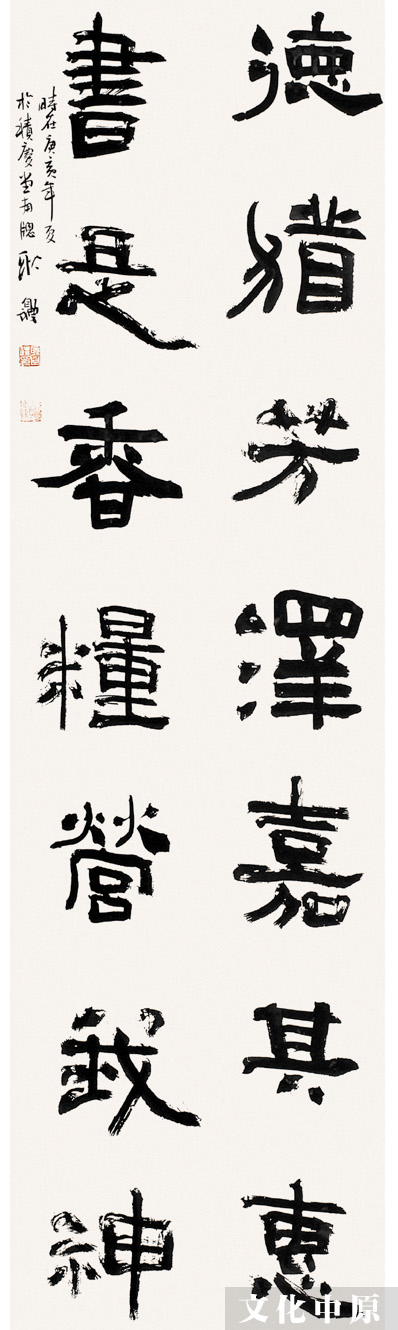 德猶芳澤嘉其惠
書是香糧營我神
時在庚亥年夏
於積慶堂南牕
文化中原